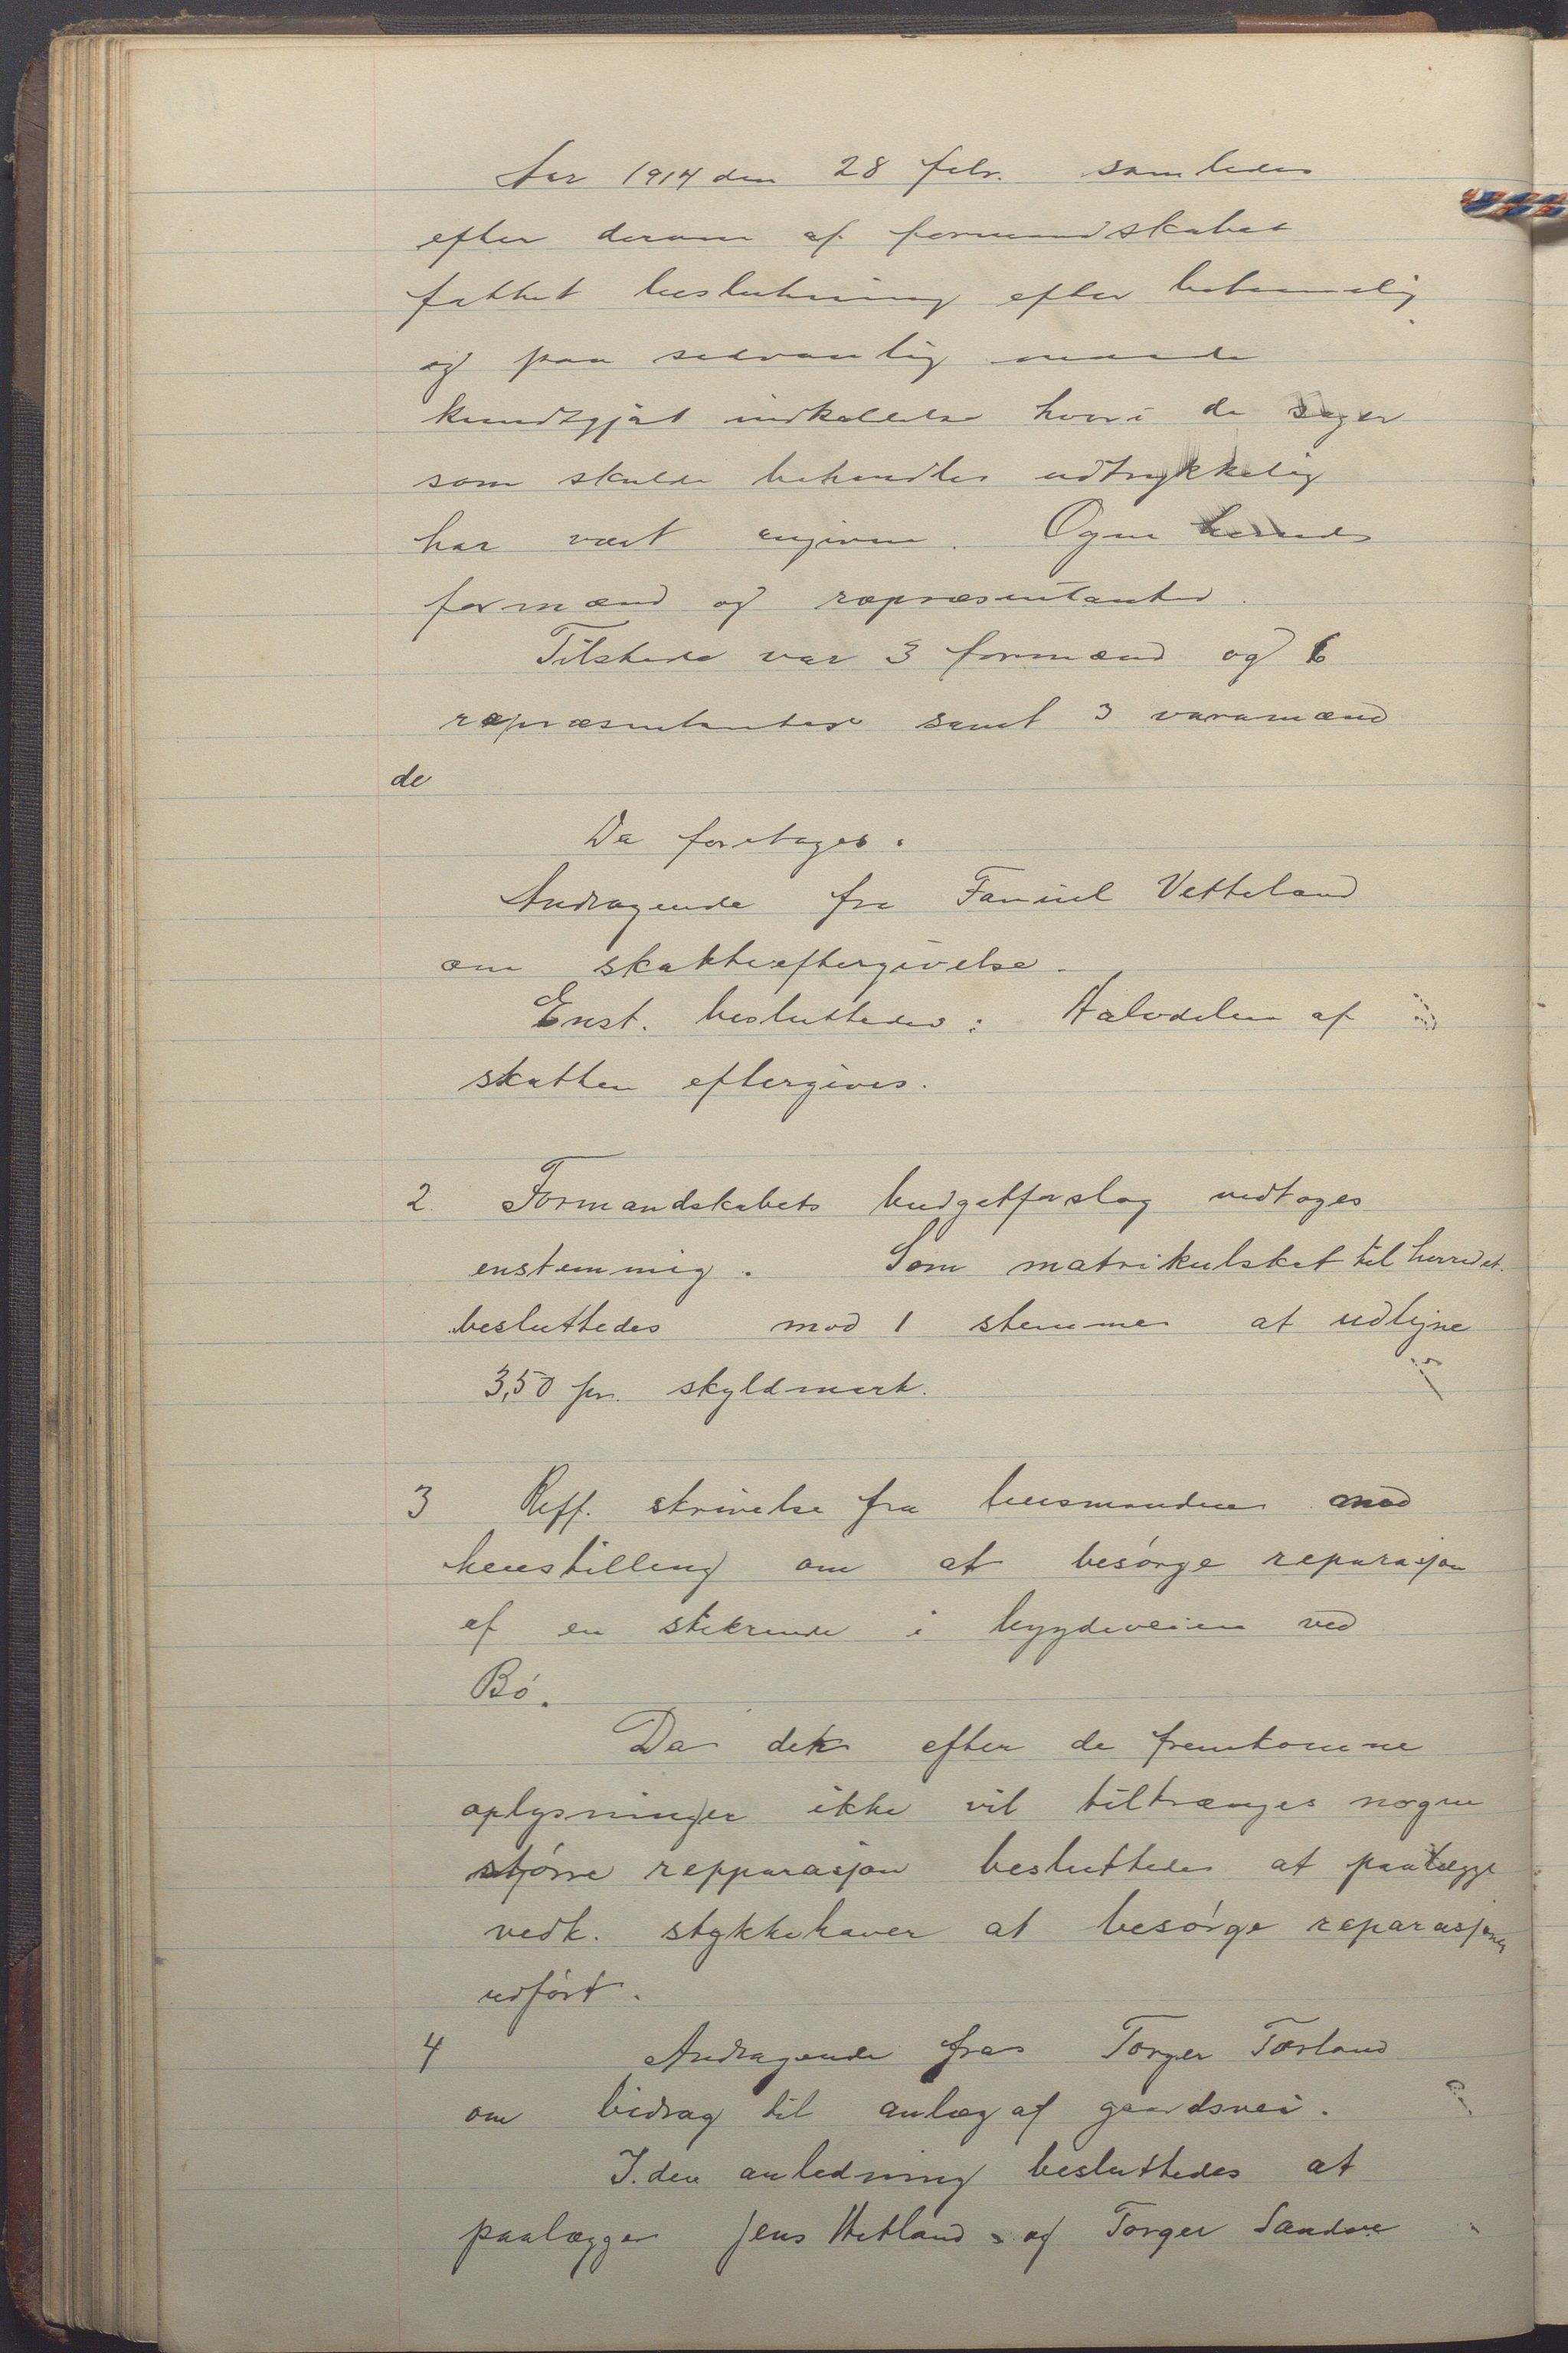 Aar 1914 den 28 febr. samledes
efter derom af formandskabet
fattet beslutning efter betimelig
og paa sedvanlig maade
kundgjort indkaldelse hvori de sager
som skulde behandles udtrykkelig
har vært angiven. Ogne herreds
formænd og repræsentanter.
Tilstede var 3 formænd og 6
repræsentanter samt 3 varamænd
de
Da foretages:
Andragende fra Faniel Vetteland
om skatteeftergivelse.
Enst. besluttedes: Halvdelen af
skatten eftergives.
2 Formandskabets budgetforslag vedtoges
enstemmig. Som matrikulskat til herredet
besluttedes mod 1 stemme at udligne
3,50 pr. skyldmark.
3 Reff. skrivelse fra lensmanden med
henstilling om at besórge reparasjon
af en stikrende i bygdeveien ved
Bó.
Da det efter de fremkomne
oplysninger ikke vil tiltrænges nogen
større repparasjon besluttedes at paalægge
vedk. stykkehaver at besórge reparasjonen
udfórt.
4 Andragende fra Torger Torland
om bidrag til anlæg af gaardsvei.
I den anledning besluttedes at
paalægge Jens Hetland og Torger Sandve